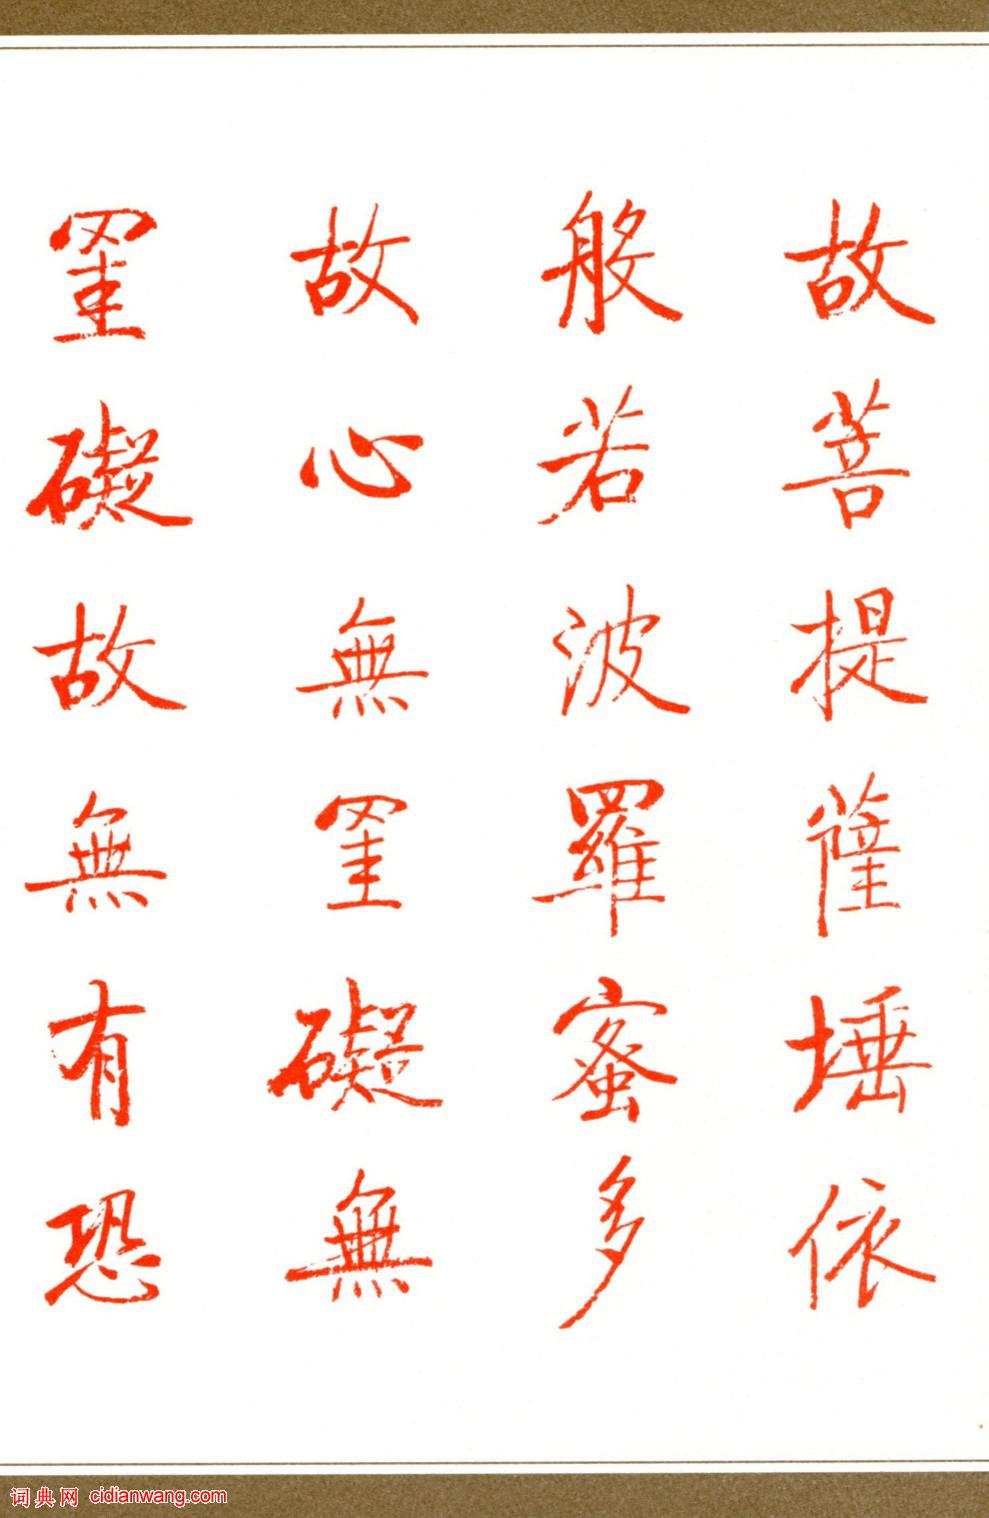 故菩提薩埵依
般若波羅蜜多
故心無罣礙無
罣礙故無有恐
词典网 cidianwang.com